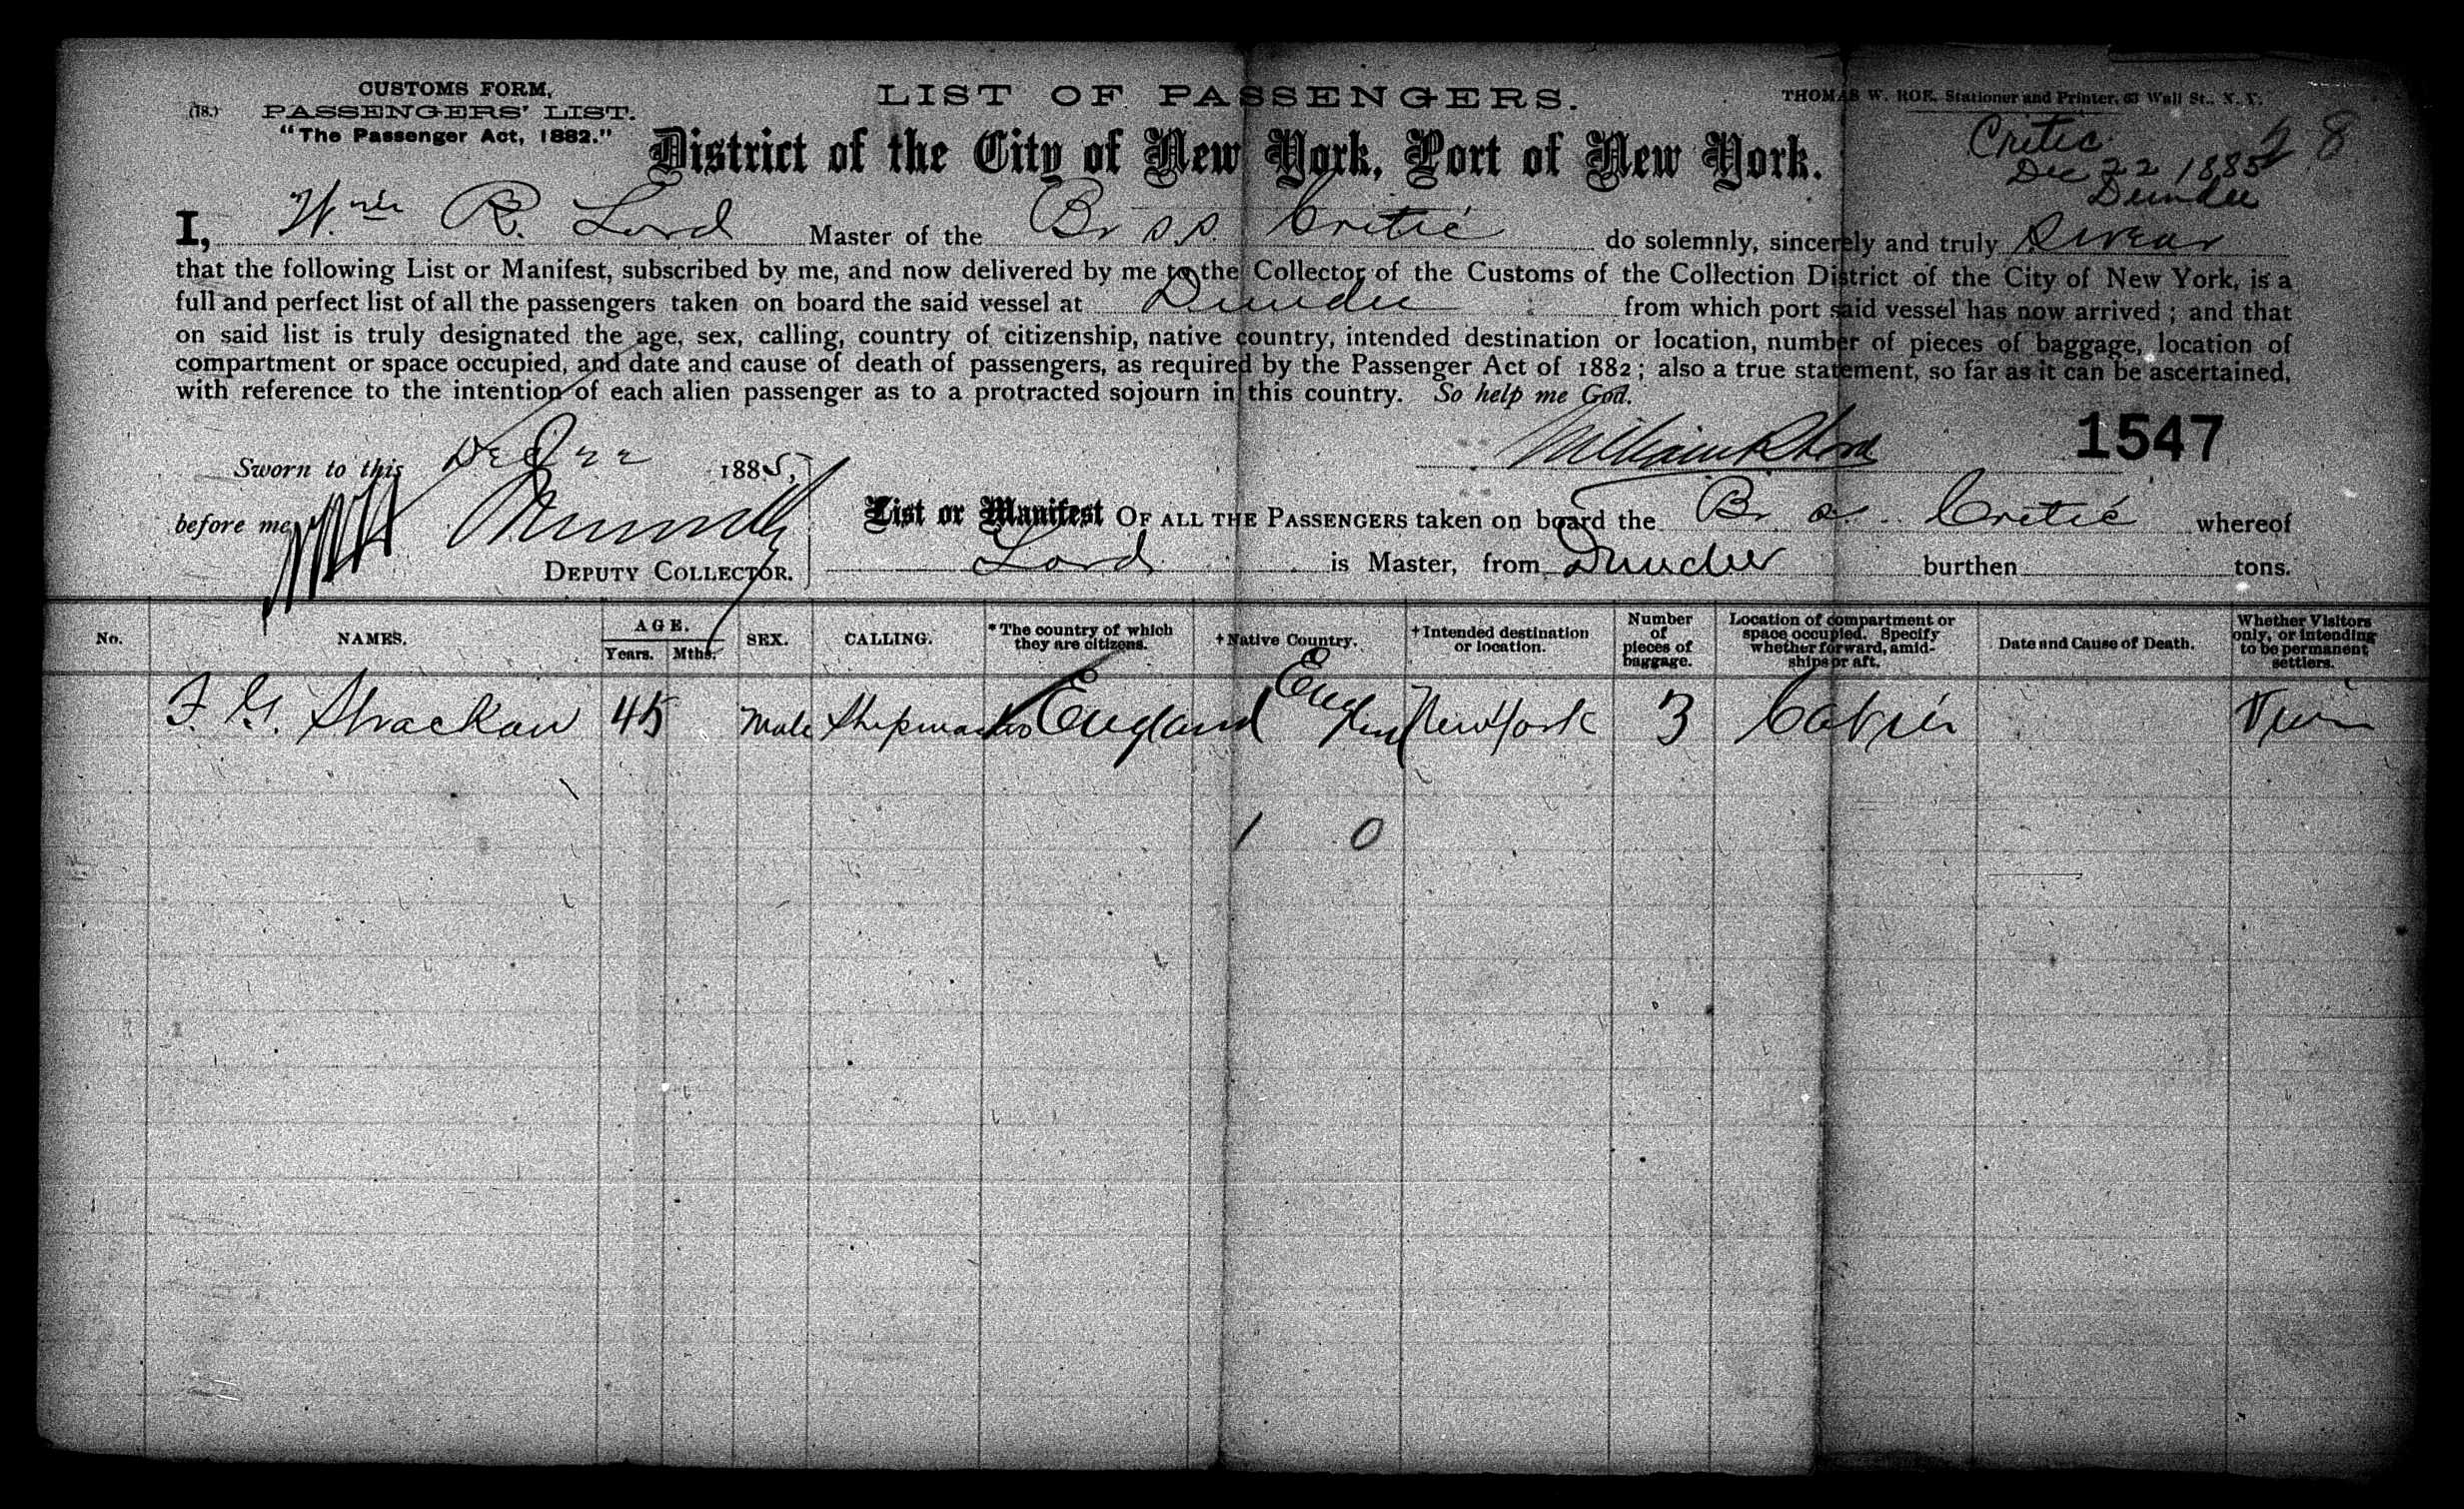 (18.)
CUSTOMS FORM,
PASSENGERS' LIST.
"The Passenger Act, 1882."
LIST OF PASSENGERS.
THOMAS W. ROE, Stationer and Printer, 63 Wall St., N. Y.
District of the City of New York, Port of New York.
Critic
Dec 22 1885
Dundee
8
I, Wm R. Lord Master of the Br S.S. Critic do solemnly, sincerely and truly Swear
that the following List or Manifest, subscribed by me, and now delivered by me to the Collector of the Customs of the Collection District of the City of New York, is a
full and perfect list of all the passengers taken on board the said vessel at Dundee from which port said vessel has now arrived; and that
on said list is truly designated the age, sex, calling, country of citizenship, native country, intended destination or location, number of pieces of baggage, location of
compartment or space occupied, and date and cause of death of passengers, as required by the Passenger Act of 1882; also a true statement, so far as it can be ascertained,
with reference to the intention of each alien passenger as to a protracted sojourn in this country. So help me God.
William R Lord
1547
Sworn to this Dec 22 1885,
before me
DEPUTY COLLECTOR.
List or Manifest OF ALL THE PASSENGERS taken on board the Br Critic whereof
Lord is Master, from Dundee burthen tons.
No. NAMES. AGE. Years. Mths. SEX. CALLING. *The country of which they are citizens. †Native Country. †Intended destination or location. Number of pieces of baggage. Location of compartment or space occupied. Specify whether forward, amidships or aft. Date and Cause of Death. Whether Visitors only, or intending to be permanent settlers.
F. G. Strachan 45 Male England England New York 3 Cabin
1 0